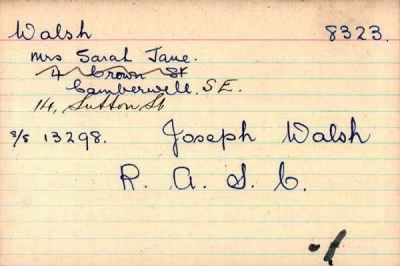 Walsh 8323.
Mrs Sarah Jane.
4 Crown St
Camberwell. S.E.
14, Sutton St
S/S 13298. Joseph Walsh
R. A. S. C.